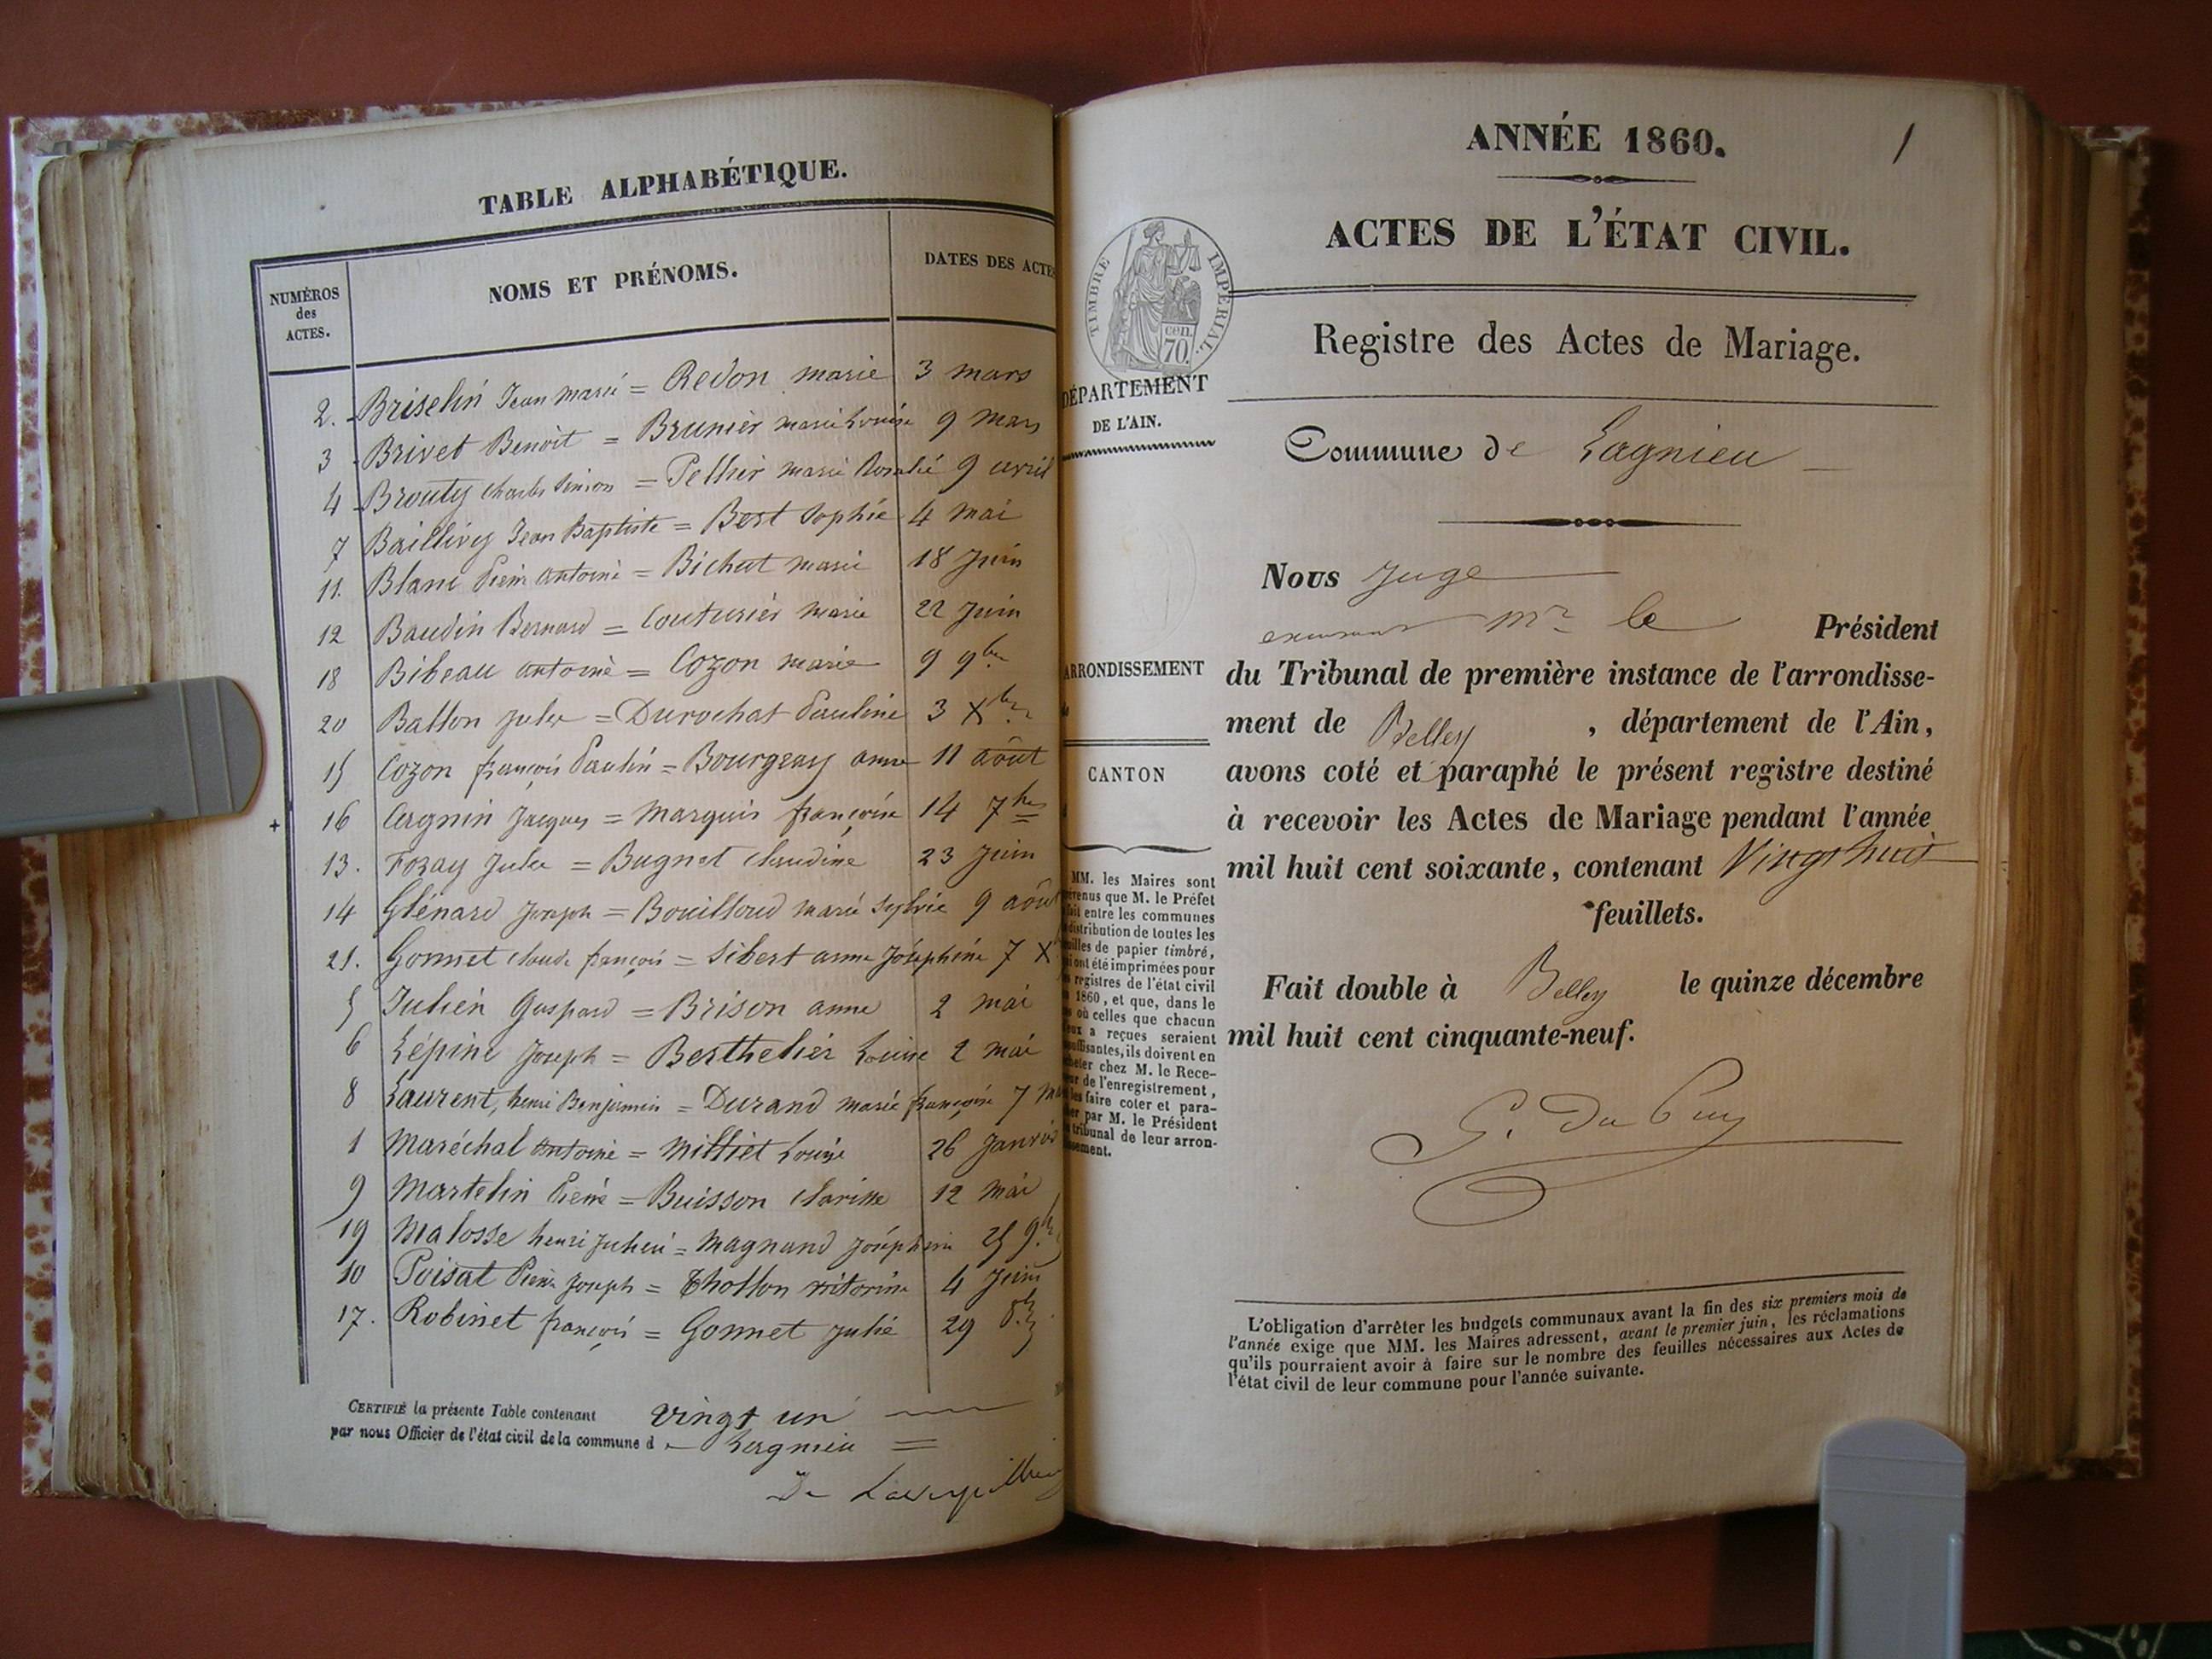 TABLE ALPHABÉTIQUE.
NUMÉROS des ACTES.
NOMS ET PRÉNOMS.
DATES DES ACTES
2. Briselin Jean marie = Redon marie 3 mars
3 Brivet Benoît = Brunier marie Louise 9 mars
4 Brouty Charles Simon = Pellier marie Rosalie 9 avril
7 Baillivy Jean Baptiste = Bert Sophie 4 mai
11. Blanc Pierre antoine = Bichat marie 18 Juin
12 Baudin Bernard = Couturier marie 22 Juin
18 Bibeau antoine = Cozon marie 9 9bre
20 Ballon Jules = Durochat Pauline 3 Xbre
15 Cozon françois Paulin = Bourgeay anne 11 août
16 Cagnin Jacques = Marquis françoise 14 7bre
13. Foray Jules = Bugnet Claudine 23 Juin
14 Glénard Joseph = Bouilloud marie Sylvie 9 août
21. Gonnet Claude françois = Sibert anne Joséphine 7 X
5 Julien Gaspard = Brison anne 2 mai
6 Lépine Joseph = Berthelier Louise 2 mai
8 Laurent, henri Benjamin = Durand marie françoise 7 m
1 Maréchal antoine = Milliet Louise 26 Janvier
9 Martelin Pierre = Buisson Clarisse 12 mai
19 Malosse henri Julien = Magnand Joséphine 25 9bre
10 Poisat Pierre Joseph = Thollon victorine 4 Juin
17. Robinet françois = Gonnet Julie 29 8bre
CERTIFIÉ la présente Table contenant vingt un
par nous Officier de l'état civil de la commune d Lagnieu
ANNÉE 1860.
1
ACTES DE L'ÉTAT CIVIL.
TIMBRE IMPÉRIAL.
cen.
70.
Registre des Actes de Mariage.
DÉPARTEMENT
DE L'AIN.
Commune de Lagnieu
Nous Juge
Mr le Président
ARRONDISSEMENT
du Tribunal de première instance de l'arrondisse-
ment de Belley, département de l'Ain,
CANTON
avons coté et paraphé le présent registre destiné
à recevoir les Actes de Mariage pendant l'année
mil huit cent soixante, contenant Vingt huit
feuillets.
Fait double à Belley le quinze décembre
mil huit cent cinquante-neuf.
G. Du Puy
MM. les Maires sont
prévenus que M. le Préfet
fait entre les communes
distribution de toutes les
feuilles de papier timbré,
qui ont été imprimées pour
les registres de l'état civil
1860, et que, dans le
cas où celles que chacun
d'eux a reçues seraient
insuffisantes, ils doivent en
acheter chez M. le Rece-
veur de l'enregistrement,
les faire coter et para-
pher par M. le Président
tribunal de leur arron-
dissement.
L'obligation d'arrêter les budgets communaux avant la fin des six premiers mois de
l'année exige que MM. les Maires adressent, avant le premier juin, les réclamations
qu'ils pourraient avoir à faire sur le nombre des feuilles nécessaires aux Actes de
l'état civil de leur commune pour l'année suivante.